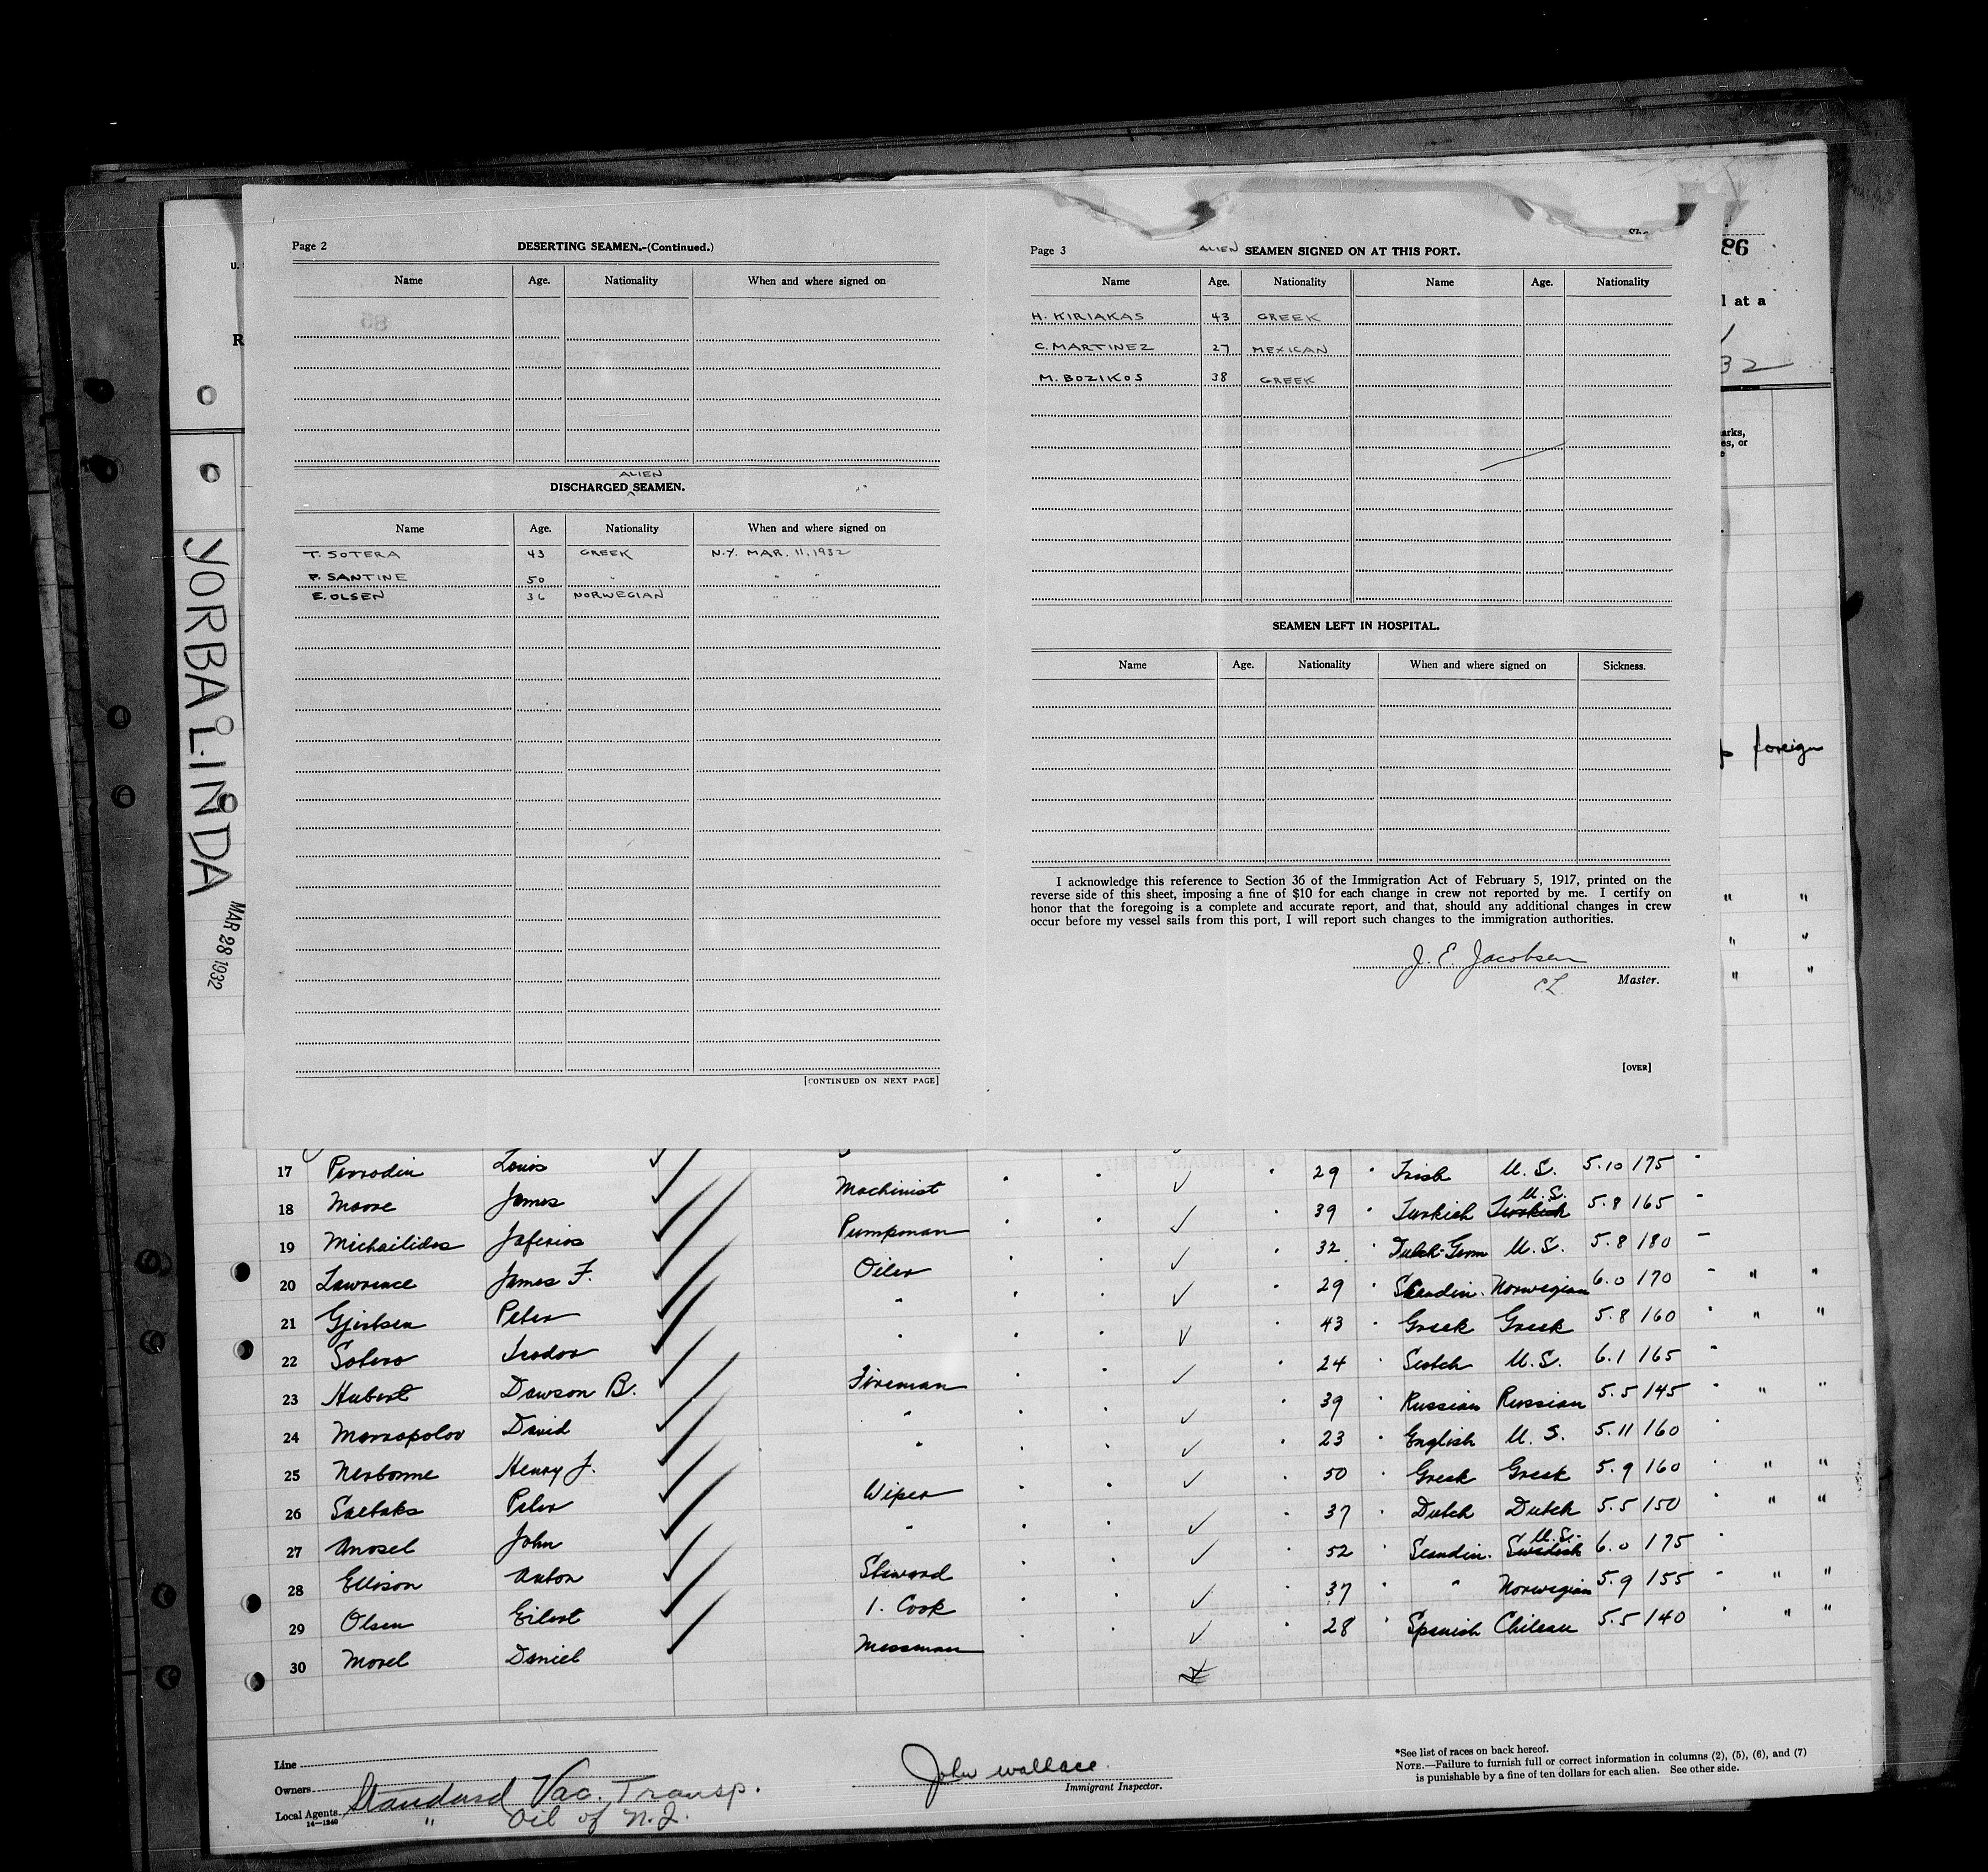 Page 2
DESERTING SEAMEN.-(Continued.)
Name Age. Nationality When and where signed on
85
ALIEN
DISCHARGED ^ SEAMEN.
Name Age. Nationality When and where signed on
T. SOTERA 43 GREEK N.Y. MAR. 11. 1932
P. SANTINE 50 " " "
E. OLSEN 36 NORWEGIAN " "
[CONTINUED ON NEXT PAGE]
Page 3
ALIEN SEAMEN SIGNED ON AT THIS PORT.
Name Age. Nationality Name Age. Nationality
H. KIRIAKAS 43 GREEK
C. MARTINEZ 27 MEXICAN
M. BOZIKOS 38 GREEK
SEAMEN LEFT IN HOSPITAL.
Name Age. Nationality When and where signed on Sickness.
I acknowledge this reference to Section 36 of the Immigration Act of February 5, 1917, printed on the
reverse side of this sheet, imposing a fine of $10 for each change in crew not reported by me. I certify on
honor that the foregoing is a complete and accurate report, and that, should any additional changes in crew
occur before my vessel sails from this port, I will report such changes to the immigration authorities.
J. E. Jacobsen
C.L. Master.
[OVER]
U.
R
YORBA LINDA
MAR 28 1932
86
l at a
32
arks,
es, or
foreign
" "
" "
" "
17 Perrodin Louis
18 Moore James Machinist 29 Irish U.S. 5.10 175
19 Michailidos Jaferios Pumpman 39 Turkish Turkish U.S. 5.8 165
20 Lawrence James F. Oiler 32 Dutch-Germ U.S. 5.8 180
21 Gjertsen Peter " 29 Scandin. Norwegian 6.0 170 " "
22 Sotero " 43 Greek Greek 5.8 160 " "
23 Hubert Dawson B. Fireman 24 Scotch U.S. 6.1 165
24 David " 39 Russian Russian 5.5 145 " "
25 Nerbonne Henry J. " 23 English U.S. 5.11 160
26 Peter Wiper 50 Greek Greek 5.9 160 " "
27 John " 37 Dutch Dutch 5.5 150 " "
28 Ellison Anton Steward 52 Scandin. Swedish U.S. 6.0 175
29 Olsen Eilert 1. Cook 37 " Norwegian 5.9 155 " "
30 Morel Daniel Messman 28 Spanish Chilean 5.5 140 " "
Line
Owners Standard Vac. Transp.
Local Agents " Oil of N.J.
14—1240
John Wallace
Immigrant Inspector.
*See list of races on back hereof.
NOTE.—Failure to furnish full or correct information in columns (2), (5), (6), and (7)
is punishable by a fine of ten dollars for each alien. See other side.